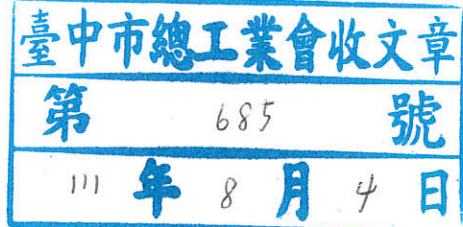 臺中市總工業會收文章
第 685 號
111 年 8 月 4 日